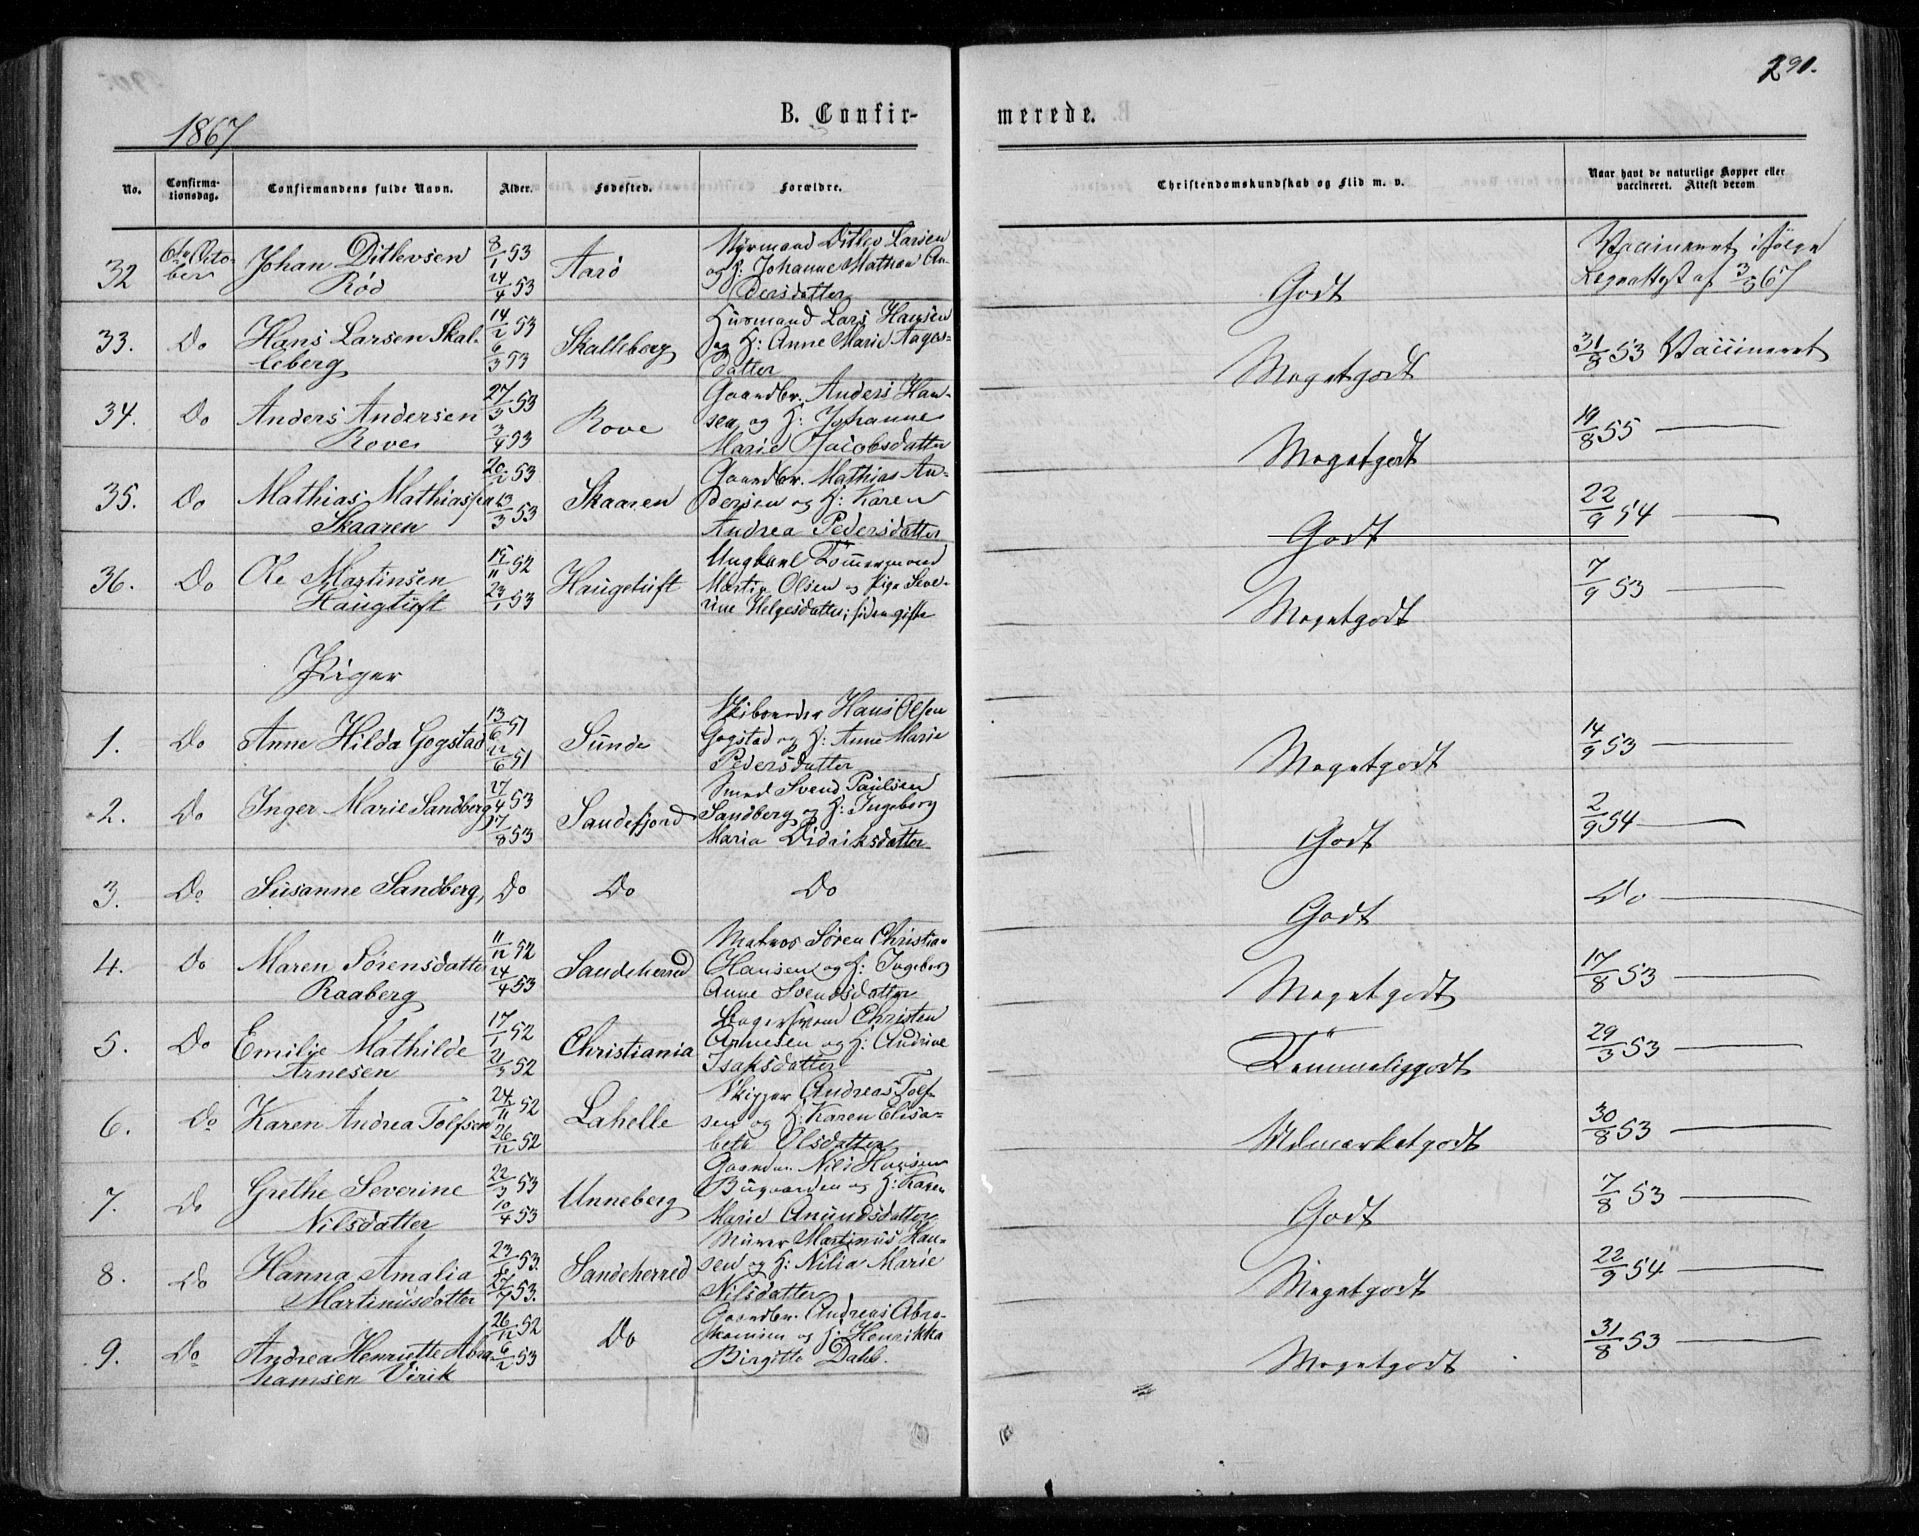 290.
1867
B. Confir-
merede.
No.
Confirma-
tionsdag.
Confirmandens fulde Navn.
Alder.
Fødested.
Forældre.
Christendomskundskab og Flid m. v.
Naar havt de naturlige Kopper eller
vaccineret. Attest derom
32 6te Octo-
ber Johan Ditlevsen
Rød 8/1 53 24/4 53 Aarø Ditlev Larsen
og H: Johanne Mathea An-
dersdatter Godt Vaccineret ifølge
Legeattest af 67
33. Do Hans Larsen Skal-
leberg 14/2 53 6/3 53 Skalleberg Husmand Lars Hansen
og H: Anne Marie Aages-
datter Megetgodt 31/8 53 Vaccineret
34. Do Anders Andersen
Rove 27/3 53 3/4 53 Rove Gaardbr. Anders Han-
sen og H: Johanne
Marie Jacobsdatter Megetgodt 19/8 55 —
35. Do Mathias Mathiassen
Skaaren 20/2 53 13/3 53 Skaaren Gaardbr. Mathias An-
dersen og H: Karen
Andrea Pedersdatter Godt 22/9 54 —
36. Do Ole Martinsen
Haugtuft 15/11 52 23/1 53 Haugetuft Ungkarl Tømmermand
Martin Olsen og Pige Seve-
rine Helgesdatter; siden gifte Megetgodt 7/9 53 —
Piger
1. Do Anne Hilda Gogstad 13/6 51 22/6 51 Sunde Hans Olsen
Gogstad og H: Anne Marie
Pedersdatter Megetgodt 14/9 53 —
2. Do Inger Marie Sandberg 27/4 53 17/8 53 Sandefjord Smed Svend Paulsen
Sandberg og H: Ingeborg
Maria Didriksdatter Godt 2/9 54 —
3. Do Susanne Sandberg, Do Do Do Godt Do —
4. Do Maren Sørensdatter
Raaberg 11/12 52 24/4 53 Sandeherred Matros Søren Christia-
Hansen og H: Ingeborg
Anne Svendsdatter Megetgodt 17/8 53 —
5. Do Emilie Mathilde
Arnesen 17/1 52 21/3 52 Christiania Christen
Arnesen og H: Andrine
Isaksdatter Temmeliggodt 29/3 53 —
6. Do Karen Andrea Tolfsen 24/11 52 26/12 52 Lahelle Skipper Andreas Tolf-
sen og H: Karen Elisa-
beth Olsdatter Udmærketgodt 30/8 53 —
7. Do Grethe Severine
Nilsdatter 22/3 53 10/4 53 Unneberg Nils Hansen
Bugaarden og H: Karen
Marie Anundsdatter Godt 7/8 53 —
8. Do Hanna Amalia
Martinusdatter 23/6 53. 27/7 53. Sandeherred Murer Martinus Han-
sen og H: Nilia Marie
Nilsdatter Megetgodt 22/9 54 —
9. Do Andrea Henriette Abra-
hamsen Virik 26/12 52 6/2 53 Do Gaardbr. Andreas Abra-
hamsen og H: Henrikka
Birgitte Dahl. Megetgodt 31/8 53 —